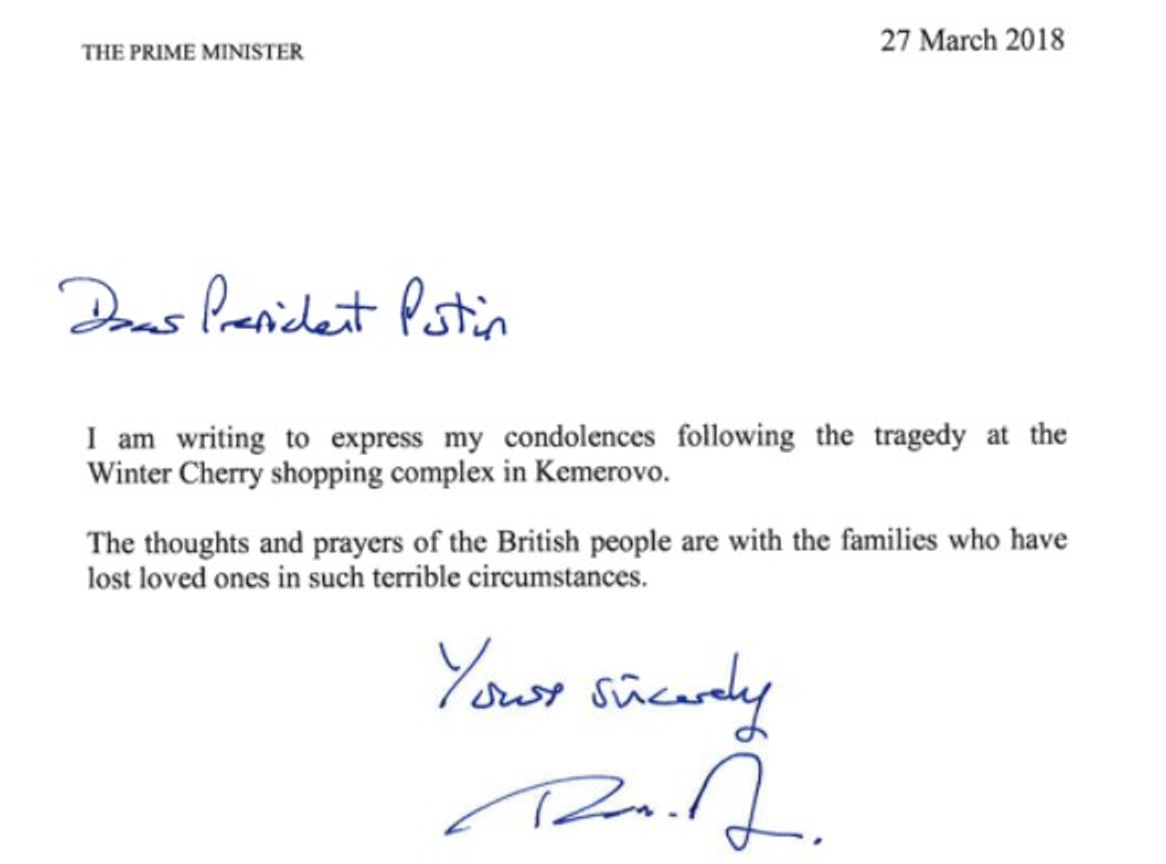 THE PRIME MINISTER
27 March 2018
Dear President Putin
I am writing to express my condolences following the tragedy at the
Winter Cherry shopping complex in Kemerovo.
The thoughts and prayers of the British people are with the families who have
lost loved ones in such terrible circumstances.
Yours sincerely